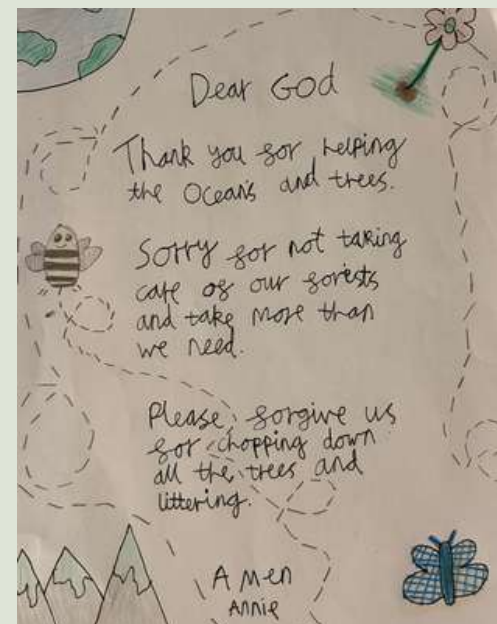 Dear GOD
Thank you for helping
the Oceans and trees.
Sorry for not taking
care of our forists
and take more than
we need.
Please forgive us
for chopping down
all the trees and
littering.
Amen
Annie